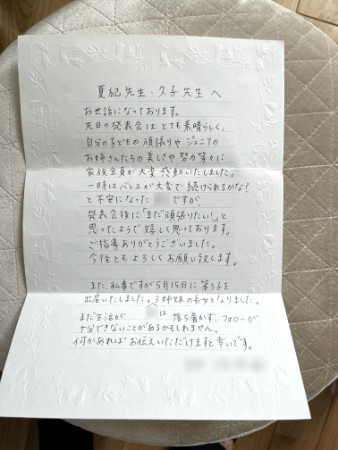 夏紀先生・久子先生へ
お世話になっております。
先日の発表会はとても素晴らしく、
自分の子どもの頑張りやジュニアの
お姉さんたちの美しさや努力等々に
家族全員が大変感動いたしました。
一時はバレエが大変で続けられるかな?
と不安になった ですが、
発表会後に「まだ頑張りたい!」と
思ったようで嬉しく思っております。
ご指導ありがとうございました。
今後ともよろしくお願い致します。
また、私事ですが5月15日に第3子を
出産いたしました。3姉妹の長女となりました。
まだ生活が は落ち着かず、フォローが
十分できないことがあるかもしれません。
何かあればお伝えいただけますと幸いです。